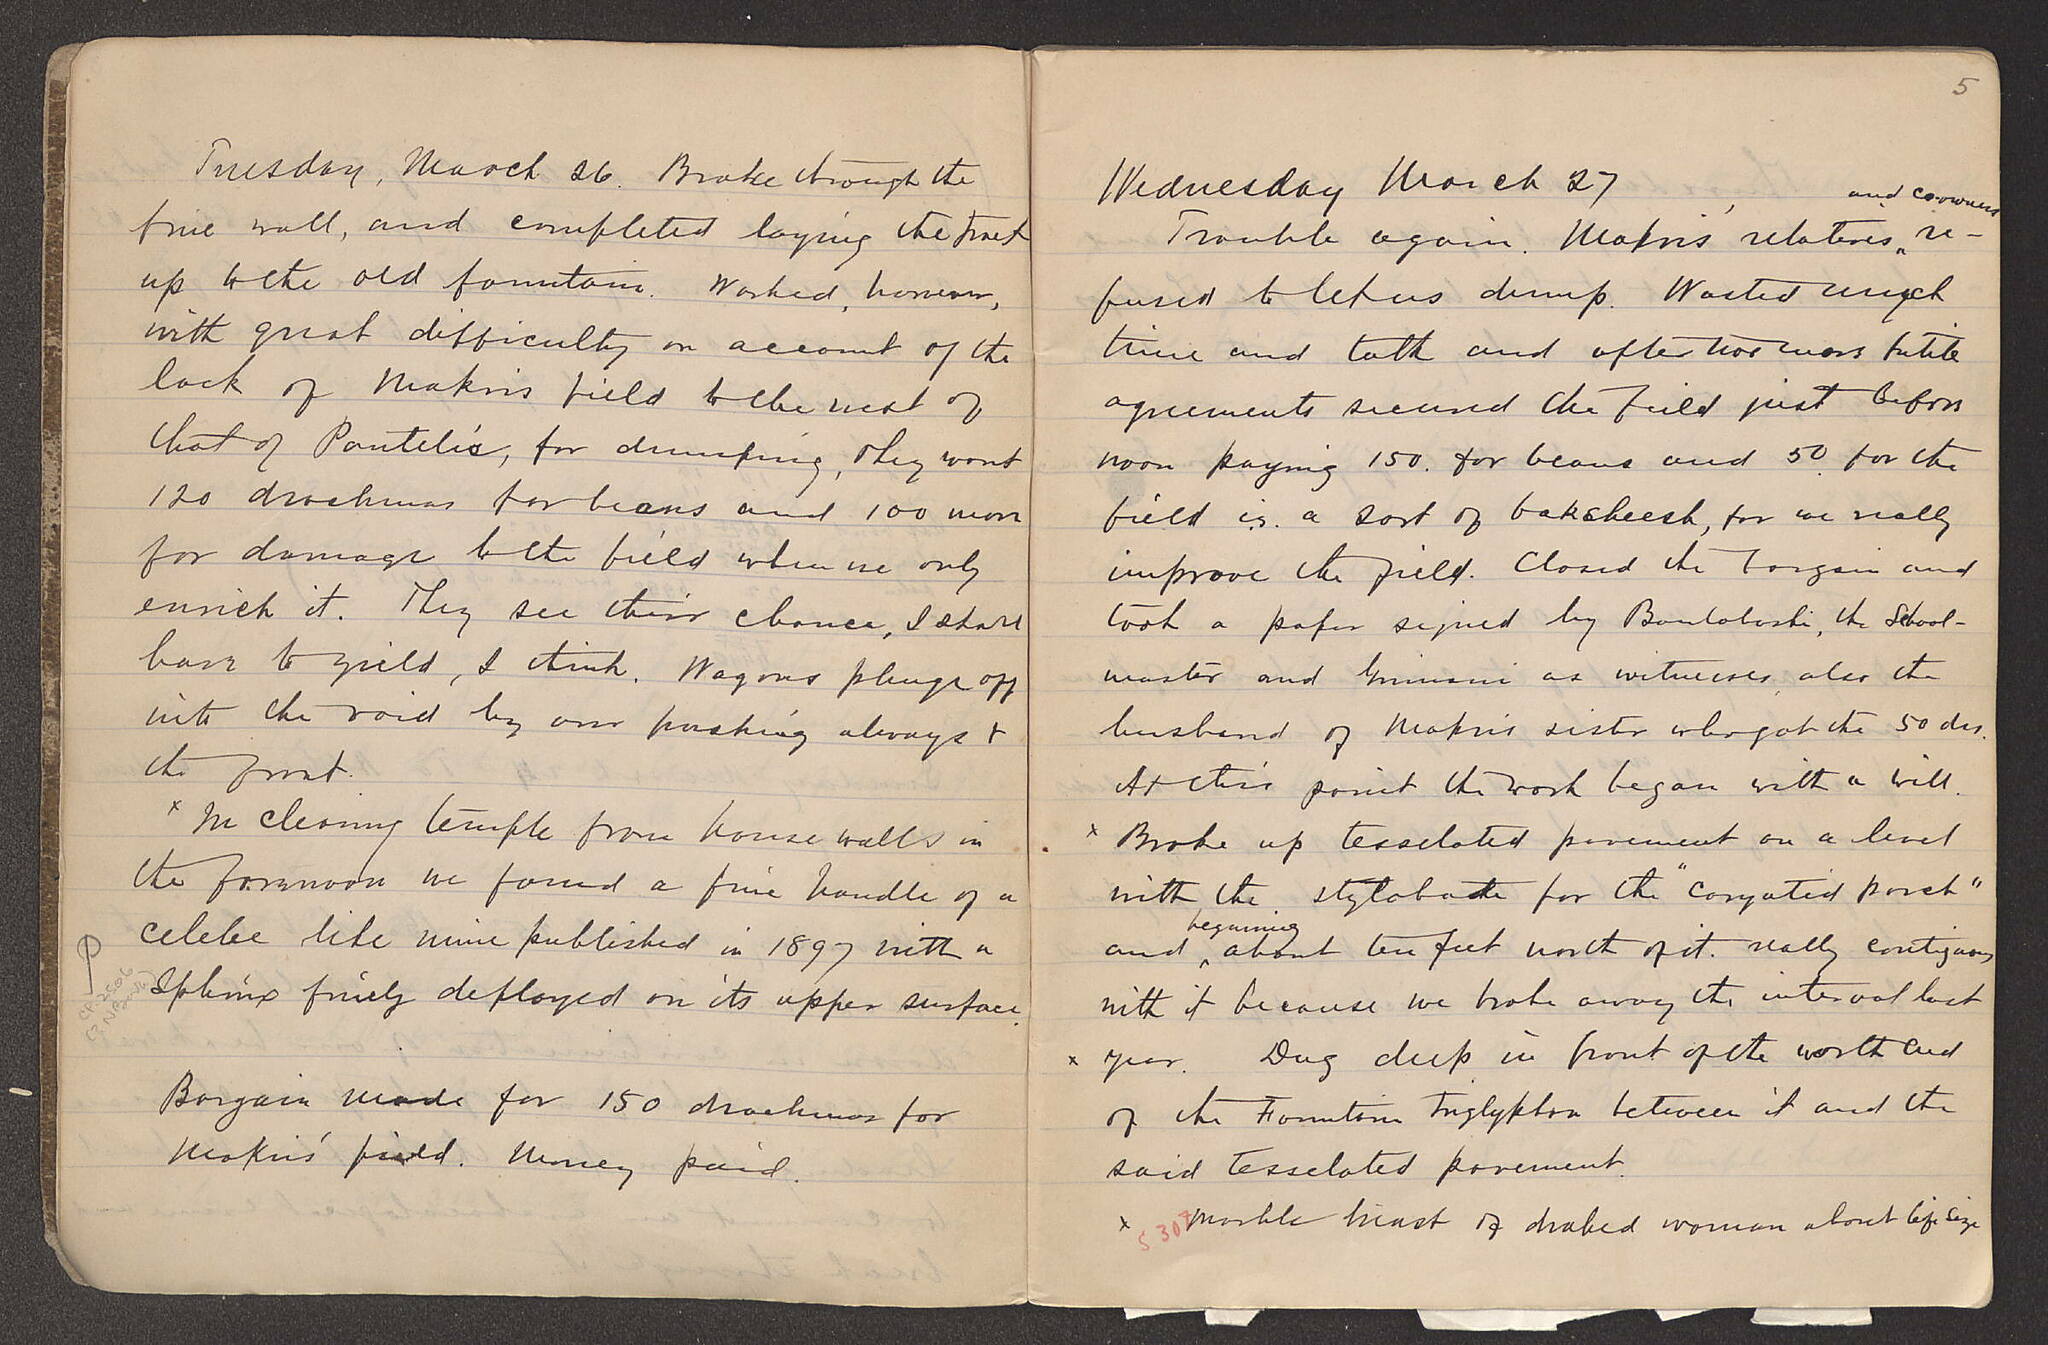 Tuesday, March 26. Broke through the
fine wall, and completed laying the track
up to the old fountain. Worked, however,
with great difficulty on account of the
lack of Makris field to the west of
that of Pantelis, for dumping, They want
120 drachmas for beans and 100 more
for damage to the field when we only
enrich it. They see their chance, I shall
have to yield, I think. Wagons plunge off
into the void by our pushing always to
the front.
x In clearing temple from house walls in
the forenoon we found a fine handle of a
celebe like mine published in 1897 with a
Sphinx finely deployed on its upper surface.
P
CP-2506
Bargain made for 150 drachmas for
Makris' field. Money paid.
5
Wednesday March 27
and co-owners
Trouble again. Makris' relatives ^ re-
fused to let us dump. Wasted much
time and talk and after numerous futile
agreements secured the field just before
noon paying 150. for beans and 50. for the
field is. a sort of baksheesh, for we really
improve the field. Closed the bargain and
took a paper signed by the School-
master and as witnesses, also the
husband of Makris sister who got the 50 drs.
At this point the work began with a will.
x Broke up tesselated pavement on a level
with the stylobate for the "coryatid porch"
beginning
and ^ about ten feet north of it. really contiguous
with it because we broke away the interval last
x year. Dug deep in front of the north end
of the Fountain Triglyphon between it and the
said tesselated pavement.
x S 307 Marble breast of draped woman about life size